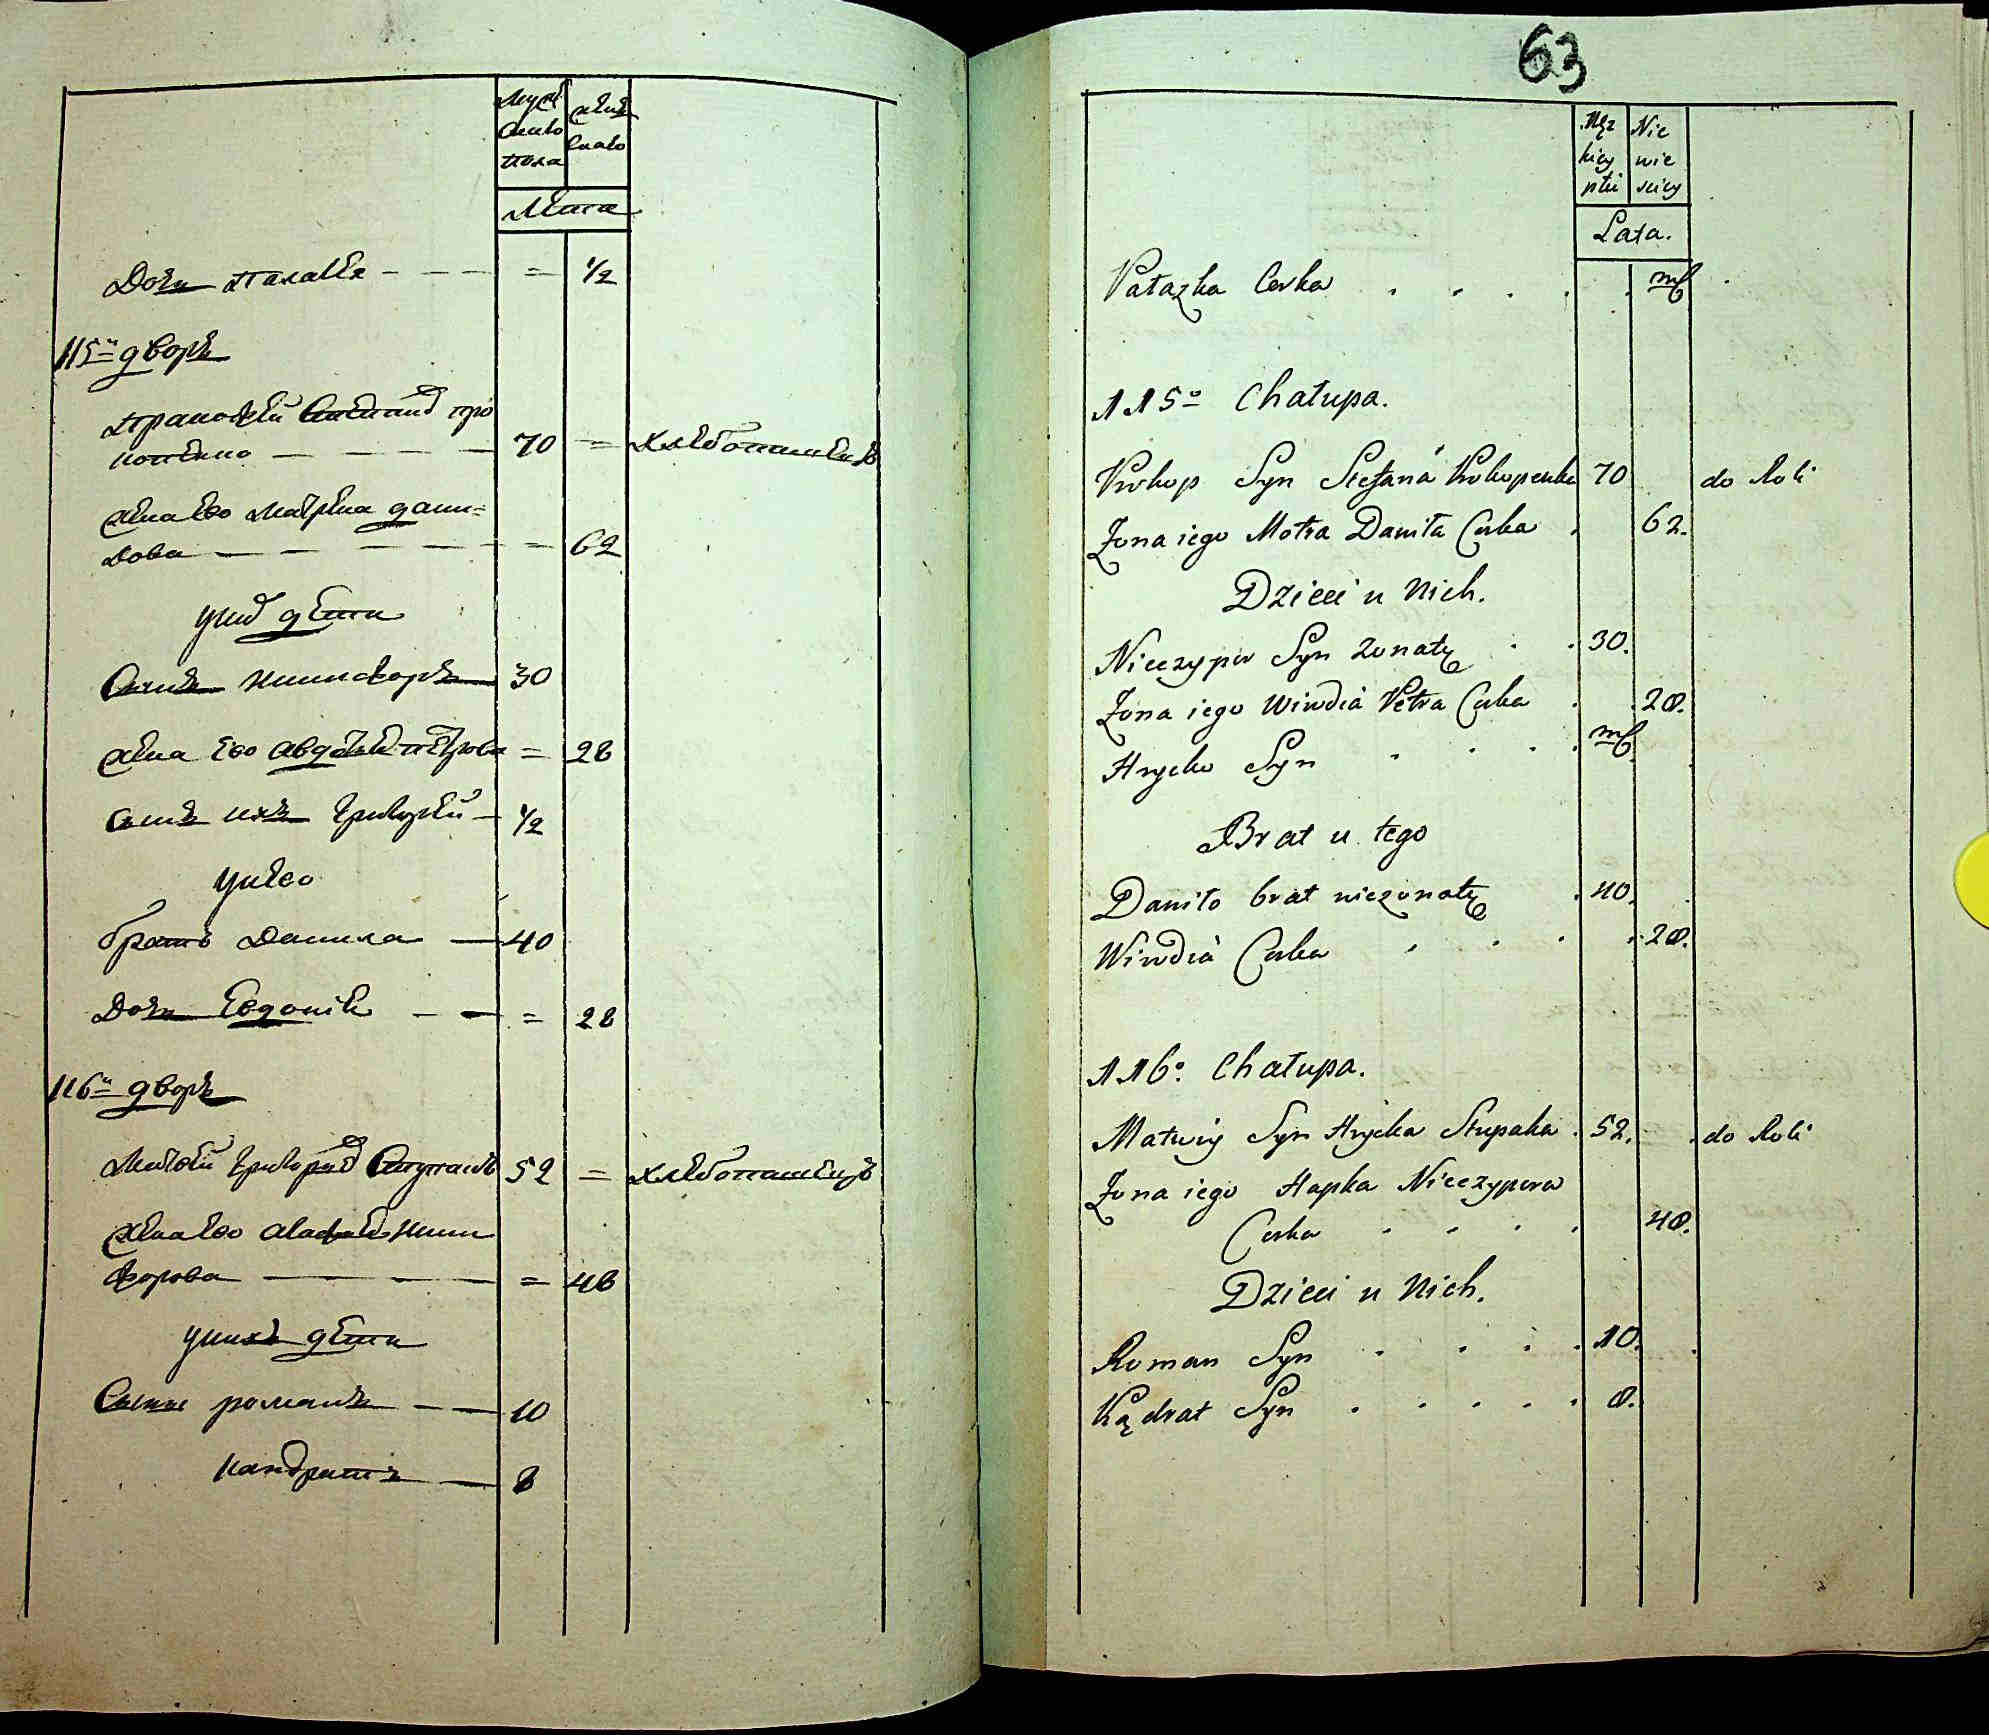 Муж
ского
пола
жен
скаго
Лета
Дочь палажка - - - = 1/2
115й дворъ
Степанов про
копенко - - - 70 = хлебопашецъ
жена ево матрена дани=
лова - - - = 62
у них дети
Сынъ никифоръ 30
жена ево авдотья петрова = 28
сынъ ихъ григорей - 1/2
у нево
братъ данила - 40
Дочь евдокия - - = 28
116й дворъ
Матвей григориев Ступакъ 52 = хлебопашецъ
жена ево агафья ники
форова - - - = 48
у нихъ дети
Сынъ романъ - - 10
кандратъ - 8
63
Męz
kiey
płci
Nie
wie
sciey
Lata.
Pałazka Corka . . . . . mſ .
115º Chałupa.
Prokop Syn Stefana Prokopenko 70 do Roli
Zona iego Motra Daniła Corka . 62.
Dzieci u Nich.
Nieczypor Syn Zonaty . . 30.
Zona iego Wiwdia Petra Corka . . 28.
Hrycko Syn . . . . mſ.
Brat u tego
Daniło brat niezonaty . 40.
Wiwdia Corka . . . . 28.
116º. Chałupa.
Matwiy Syn Hrycka Stupaka . 52. . do Roli
Zona iego Hapka Nieczypora
Corka . . . . 48.
Dzieci u Nich.
Roman Syn . . . . 10.
Kądrat Syn . . . . . 8.